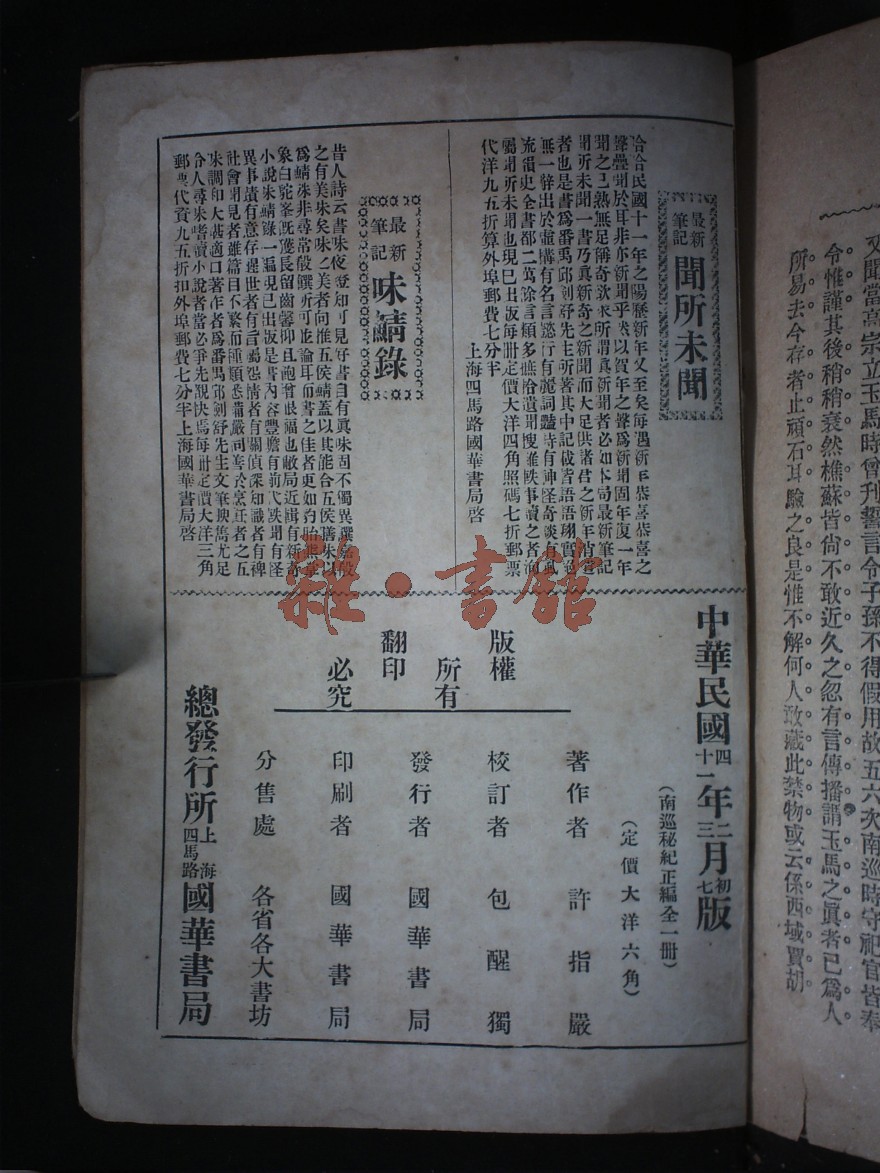 又聞當高宗立玉馬時曾刊誓言令子孫不得假用故五六次南巡時守祀官皆奉
令惟謹其後稍稍衰然樵蘇皆尙不敢近久之忽有言傳播謂玉馬之眞者已爲人
所易去今存者止頑石耳驗之良是惟不解何人敢藏此禁物或云係西域賈胡
最新筆記 聞所未聞
恰恰民國十一年之陽歷新年又至矣每遇新年恭喜恭喜之
聲疊聞於耳非亦新聞乎然以賀年之聲爲新聞固年復一年
聞之已熟無足稱奇欲求所謂眞新聞者必如本局最新筆記
聞所未聞一書乃眞新奇之新聞而大足供諸君之新年消遣
者也是書爲番禺邱剡舒先生所著其中記載皆語語翔實
無一辭出於虛構有名言懿行有麗詞豔詩有神怪奇談有風
流韻史全書都二萬餘言類多蒐拾遺聞搜羅軼事讀之者洵
屬聞所未聞也現已出版每冊定價大洋四角照碼七折郵票
代洋九五折算外埠郵費七分半
上海四馬路國華書局啓
最新筆記 味鯖錄
昔人詩云書味夜燈知可見好書自有眞味固不獨異饌嘉殽
之有美味矣味之美者向推五侯鯖蓋以其能合五侯膳味以
爲鯖殊非尋常殽饌所可並論耳而書之佳者更如豹胎熊掌
象白駝峯旣雋長留齒馨抑且飽曾眼福也敝局近輯有新奇
小說味鯖錄一編現已出版是書內容豐贍有前代軼聞有怪
異事蹟有意存邊世者有言屬怨情者有關偵探知識者有裨
社會聞見者雖篇目不繁而種類悉備嚴同善於烹飪者之五
味調和大堪適口著作者爲番禺邱剡舒先生文筆典雋尤足
令人尋味嗜讀小說者當必爭先覩快焉每冊定價大洋三角
郵票代資九五折扣外埠郵費七分半上海國華書局啓
中華民國十四一年三二月七初版
(南巡秘紀正編全一冊)
(定價大洋六角)
版權
所有
翻印
必究
著作者 許指嚴
校訂者 包醒獨
發行者 國華書局
印刷者 國華書局
分售處 各省各大書坊
總發行所 上海四馬路 國華書局
雜·書館